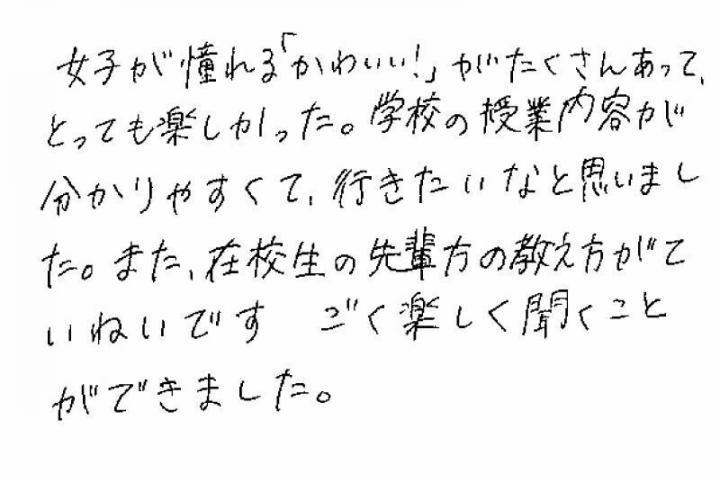 女子が憧れる「かわいい!」がたくさんあって、
とっても楽しかった。学校の授業内容が
分かりやすくて、行きたいなと思いまし
た。また、在校生の先輩方の教え方がて
いねいです ごく楽しく聞くこと
ができました。